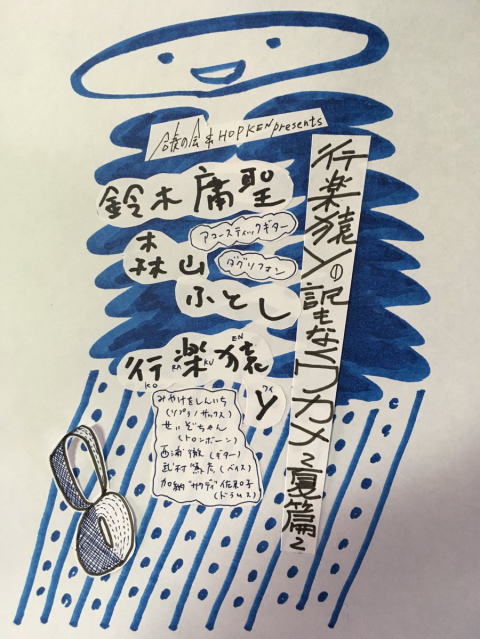 の会 & HOPKEN presents
行楽猿Yの記もなきワカメ〜夏篇〜
鈴木庸聖
アコースティックギター
森山ふとし
ダグリフォン
行楽猿
KO RA KU EN
Y
ワイ
みやけをしんいち
(ソプラノサックス)
せいぞちゃん
(トロンボーン)
西浦徹(ギター)
(ベイス)
加納"サクディ"佐和子
(ドラムス)